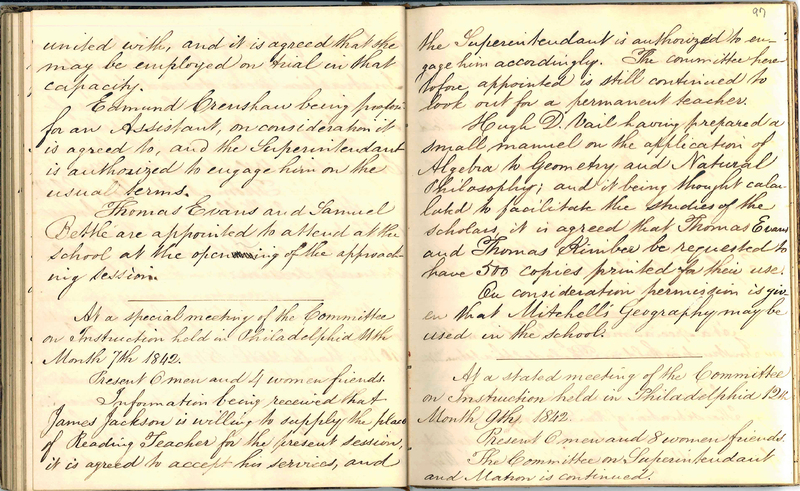 united with, and it is agreed that she
may be employed on trial in that
capacity.
Edmund Crenshaw being
for an Assistant, on consideration it
is agreed to, and the Superintendant
is authorized to engage him on the
usual terms.
Thomas Evans and Samuel
Bettle are appointed to attend at the
school at the opening of the approach-
ing session.
At a special meeting of the Committee
on Instruction held in Philadelphia 11th
Month 7th 1842.
Present 6 men and 4 women friends.
Information being received that
James Jackson is willing to supply the place
of Reading Teacher for the present session,
it is agreed to accept his services, and
97
the Superintendant is authorized to en-
gage him accordingly. The committee here
tofore appointed is still continued to
look out for a permanent teacher.
Hugh D. Vail having prepared a
small manuel on the application of
Algebra to Geometry and Natural
Philosophy; and it being thought calcu-
lated to facilitate the studies of the
scholars, it is agreed that Thomas Evans
and Thomas Kimber be requested to
have 500 copies printed for their use.
On consideration permission is giv-
en that Mitchell's Geography may be
used in the school.
At a stated meeting of the Committee
on Instruction held in Philadelphia 12th
Month 9th 1842.
Present 6 men and 8 women friends.
The Committee on Superintendant
and Matron is continued.